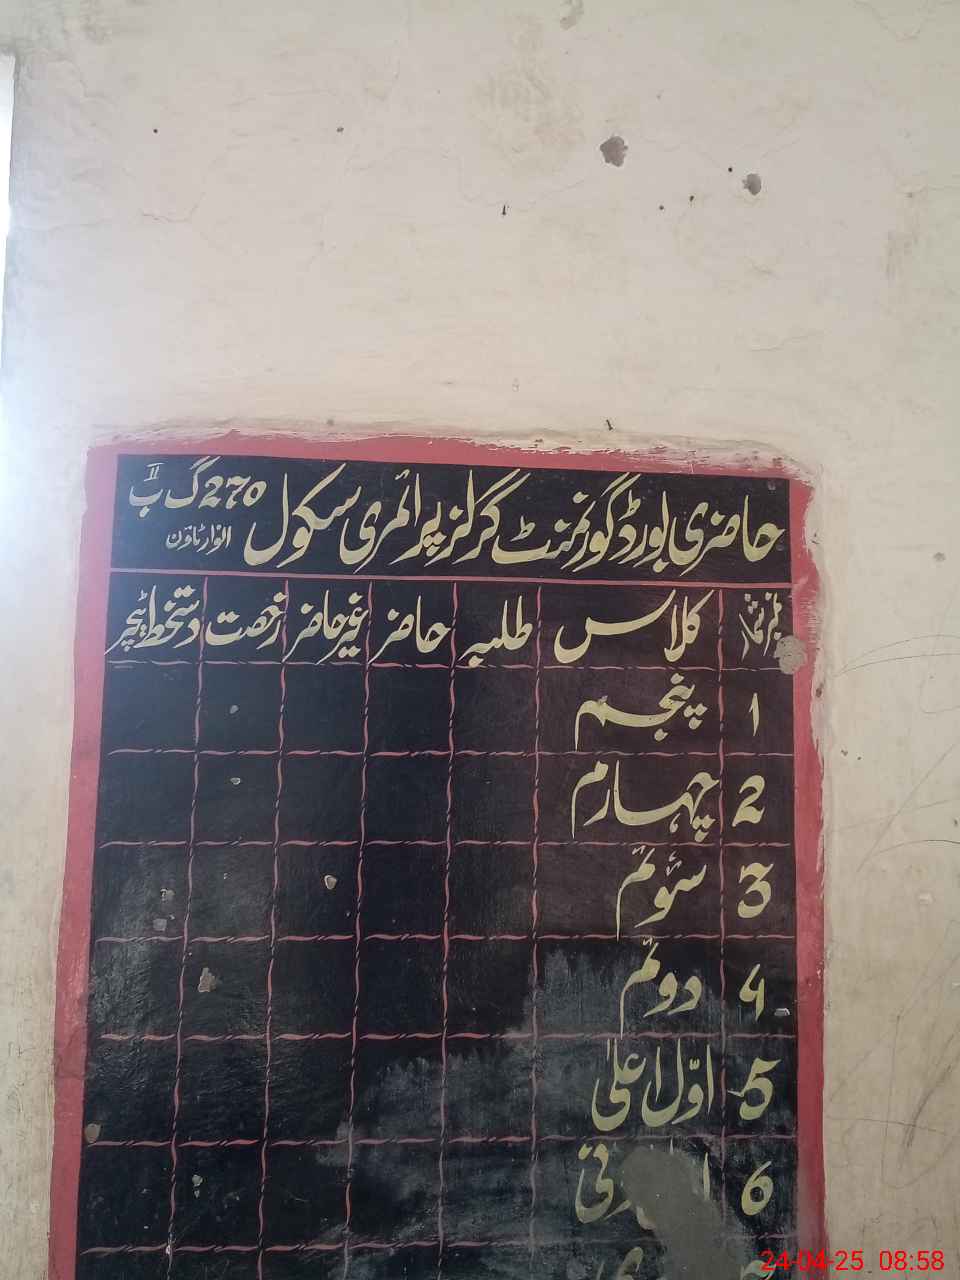 حاضری بورڈ گورنمنٹ گرلز پرائمری سکول 270 گ ب II
انوار ٹاؤن
نمبر شمار کلاس طلبہ حاضر غیر حاضر رخصت دستخط ٹیچر
1 پنجم
2 چہارم
3 سوئم
4 دوئم
5 اوّل اعلیٰ
6
24-04-25 08:58